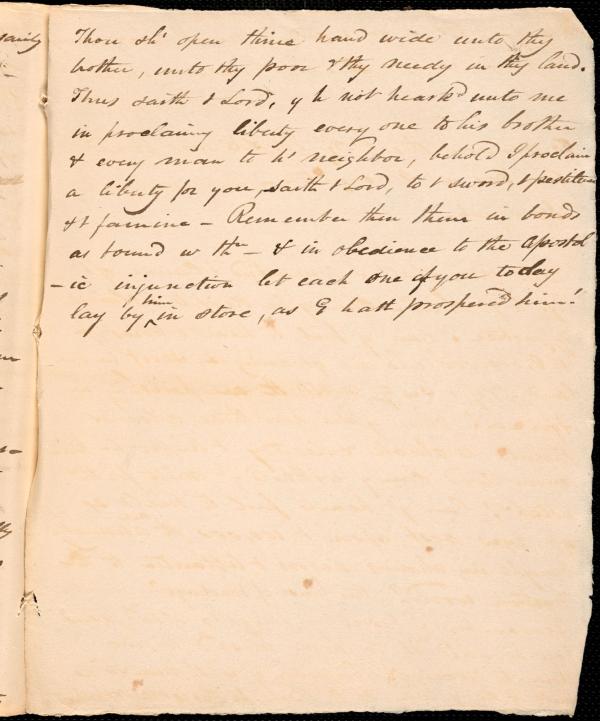 Thou sh' open thine hand wide unto thy
brother, unto thy poor & thy needy in thy land.
Thus saith t Lord, y h not heark'd unto me
in proclaimg liberty every one to his brother
& every man to h' neighbor, behold I proclaim
a liberty for you, saith t Lord, to t sword, t pestilence
& t famine – Remember then them in bonds
as bound w thm – & in obedience to the apostol
-ic injunction let each one of you today
lay by him in store, as G hath prospered him!